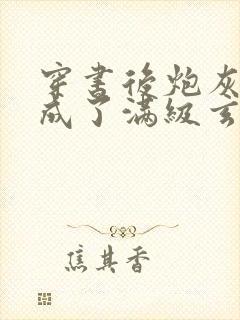 穿書後炮灰
成了滿級玄
焦其香